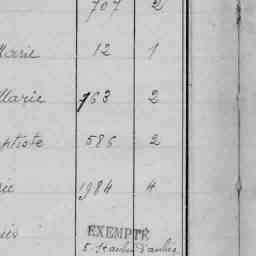 707 2
Marie 12 1
Marie 763 2
aptiste 586 2
rie 1984 4
EXEMPTÉ
5